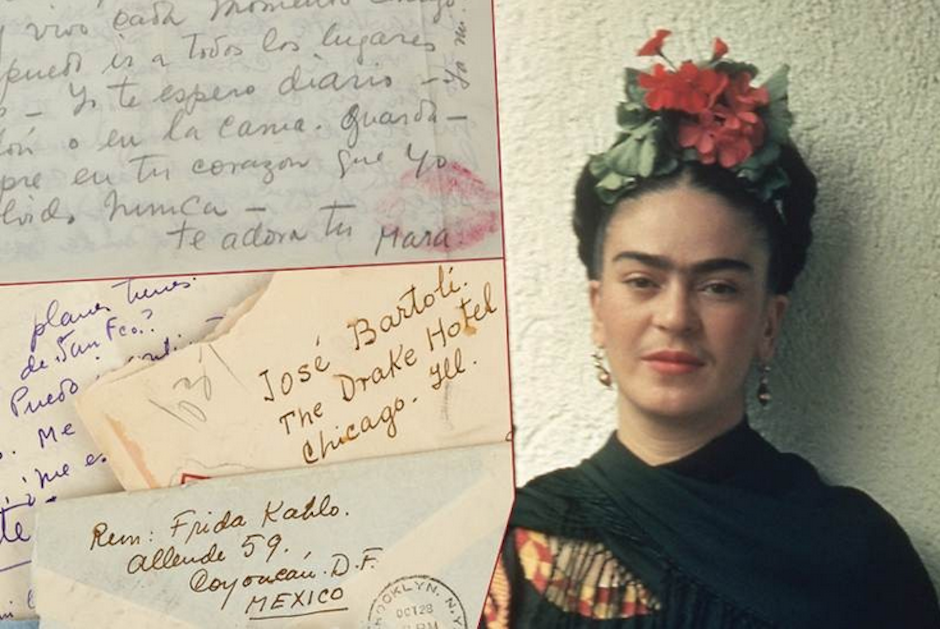 y vivo cada momento
puedo ir a todos los lugares
— Yo te espero diario —
o en la cama. Guarda—
pre en tu corazon que yo
lvido nunca —
te adora tu Mara.
planes tienes.
de San Fco.?
Puedo
Me
me
te
José Bartoli.
The Drake Hotel
Chicago. Ill.
Rem: Frida Kahlo.
Allende 59.
Coyoacán. D.F.
MEXICO
OOKLYN. N.Y.
OCT 28
PM